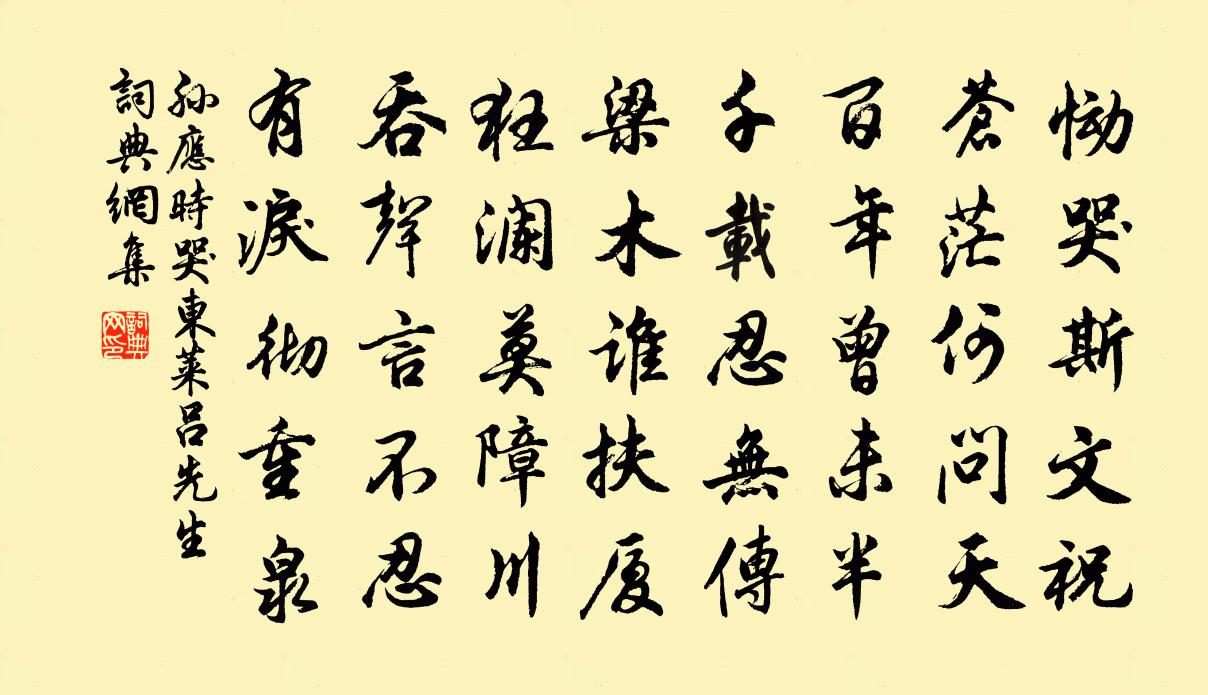 恸哭斯文祝
蒼茫何問天
百年曾未半
千載忍無傳
梁木谁扶厦
狂澜莫障川
吞聲言不忍
有淚彻重泉
孙應時哭東萊吕先生
詞典網集
詞典
网印